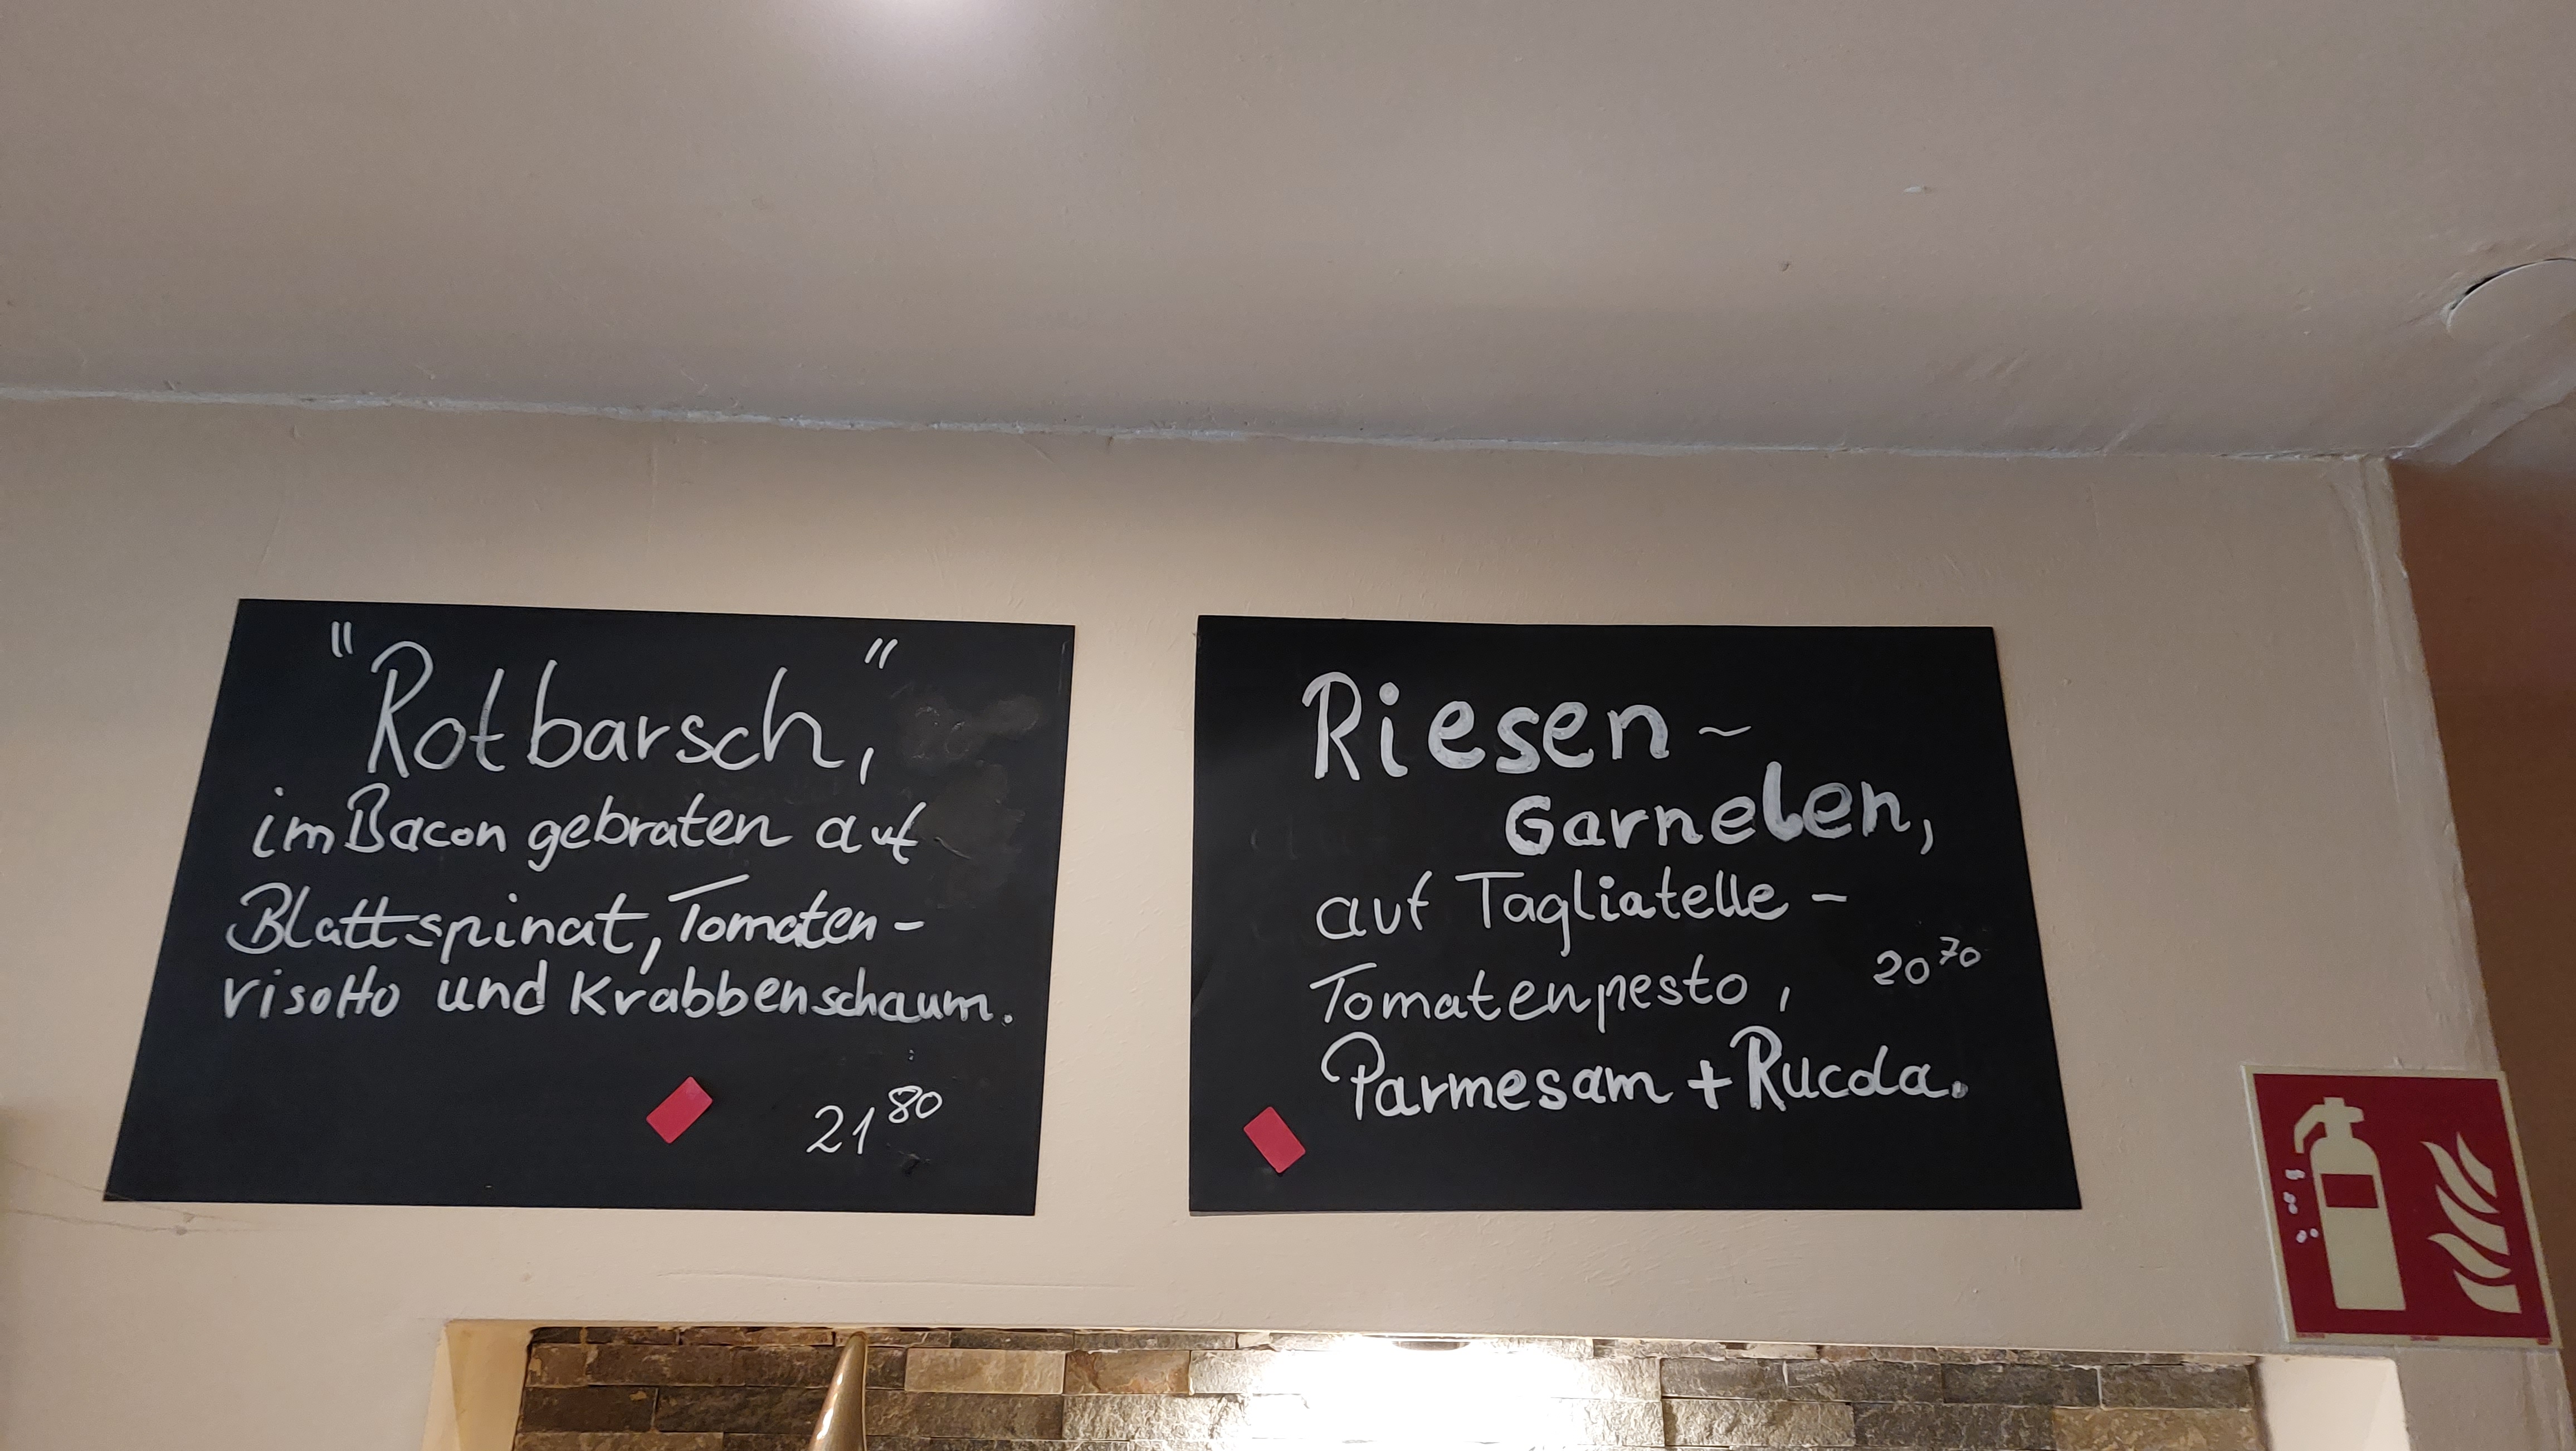 "Rotbarsch,"
im Bacon gebraten auf
Blattspinat, Tomaten-
risotto und Krabbenschaum.
21 80
Riesen-
Garnelen,
auf Tagliatelle -
Tomatenpesto,
20 70
Parmesam + Rucola.